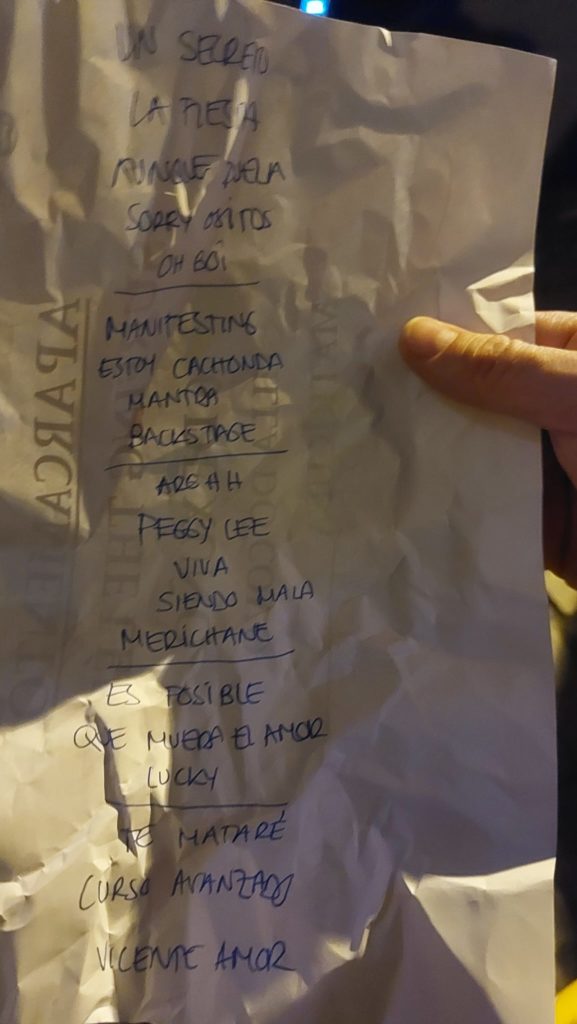 UN SECRETO
LA FIESTA
AUNQUE DUELA
SORRY OSITOS
OH BOI
MANIFESTING
ESTOY CACHONDA
MANTRA
BACKSTAGE
PEGGY LEE
VIVA
SIENDO MALA
MERICHANE
ES POSIBLE
QUE MUERA EL AMOR
LUCKY
TE MATARÉ
CURSO AVANZADO
VICENTE AMOR